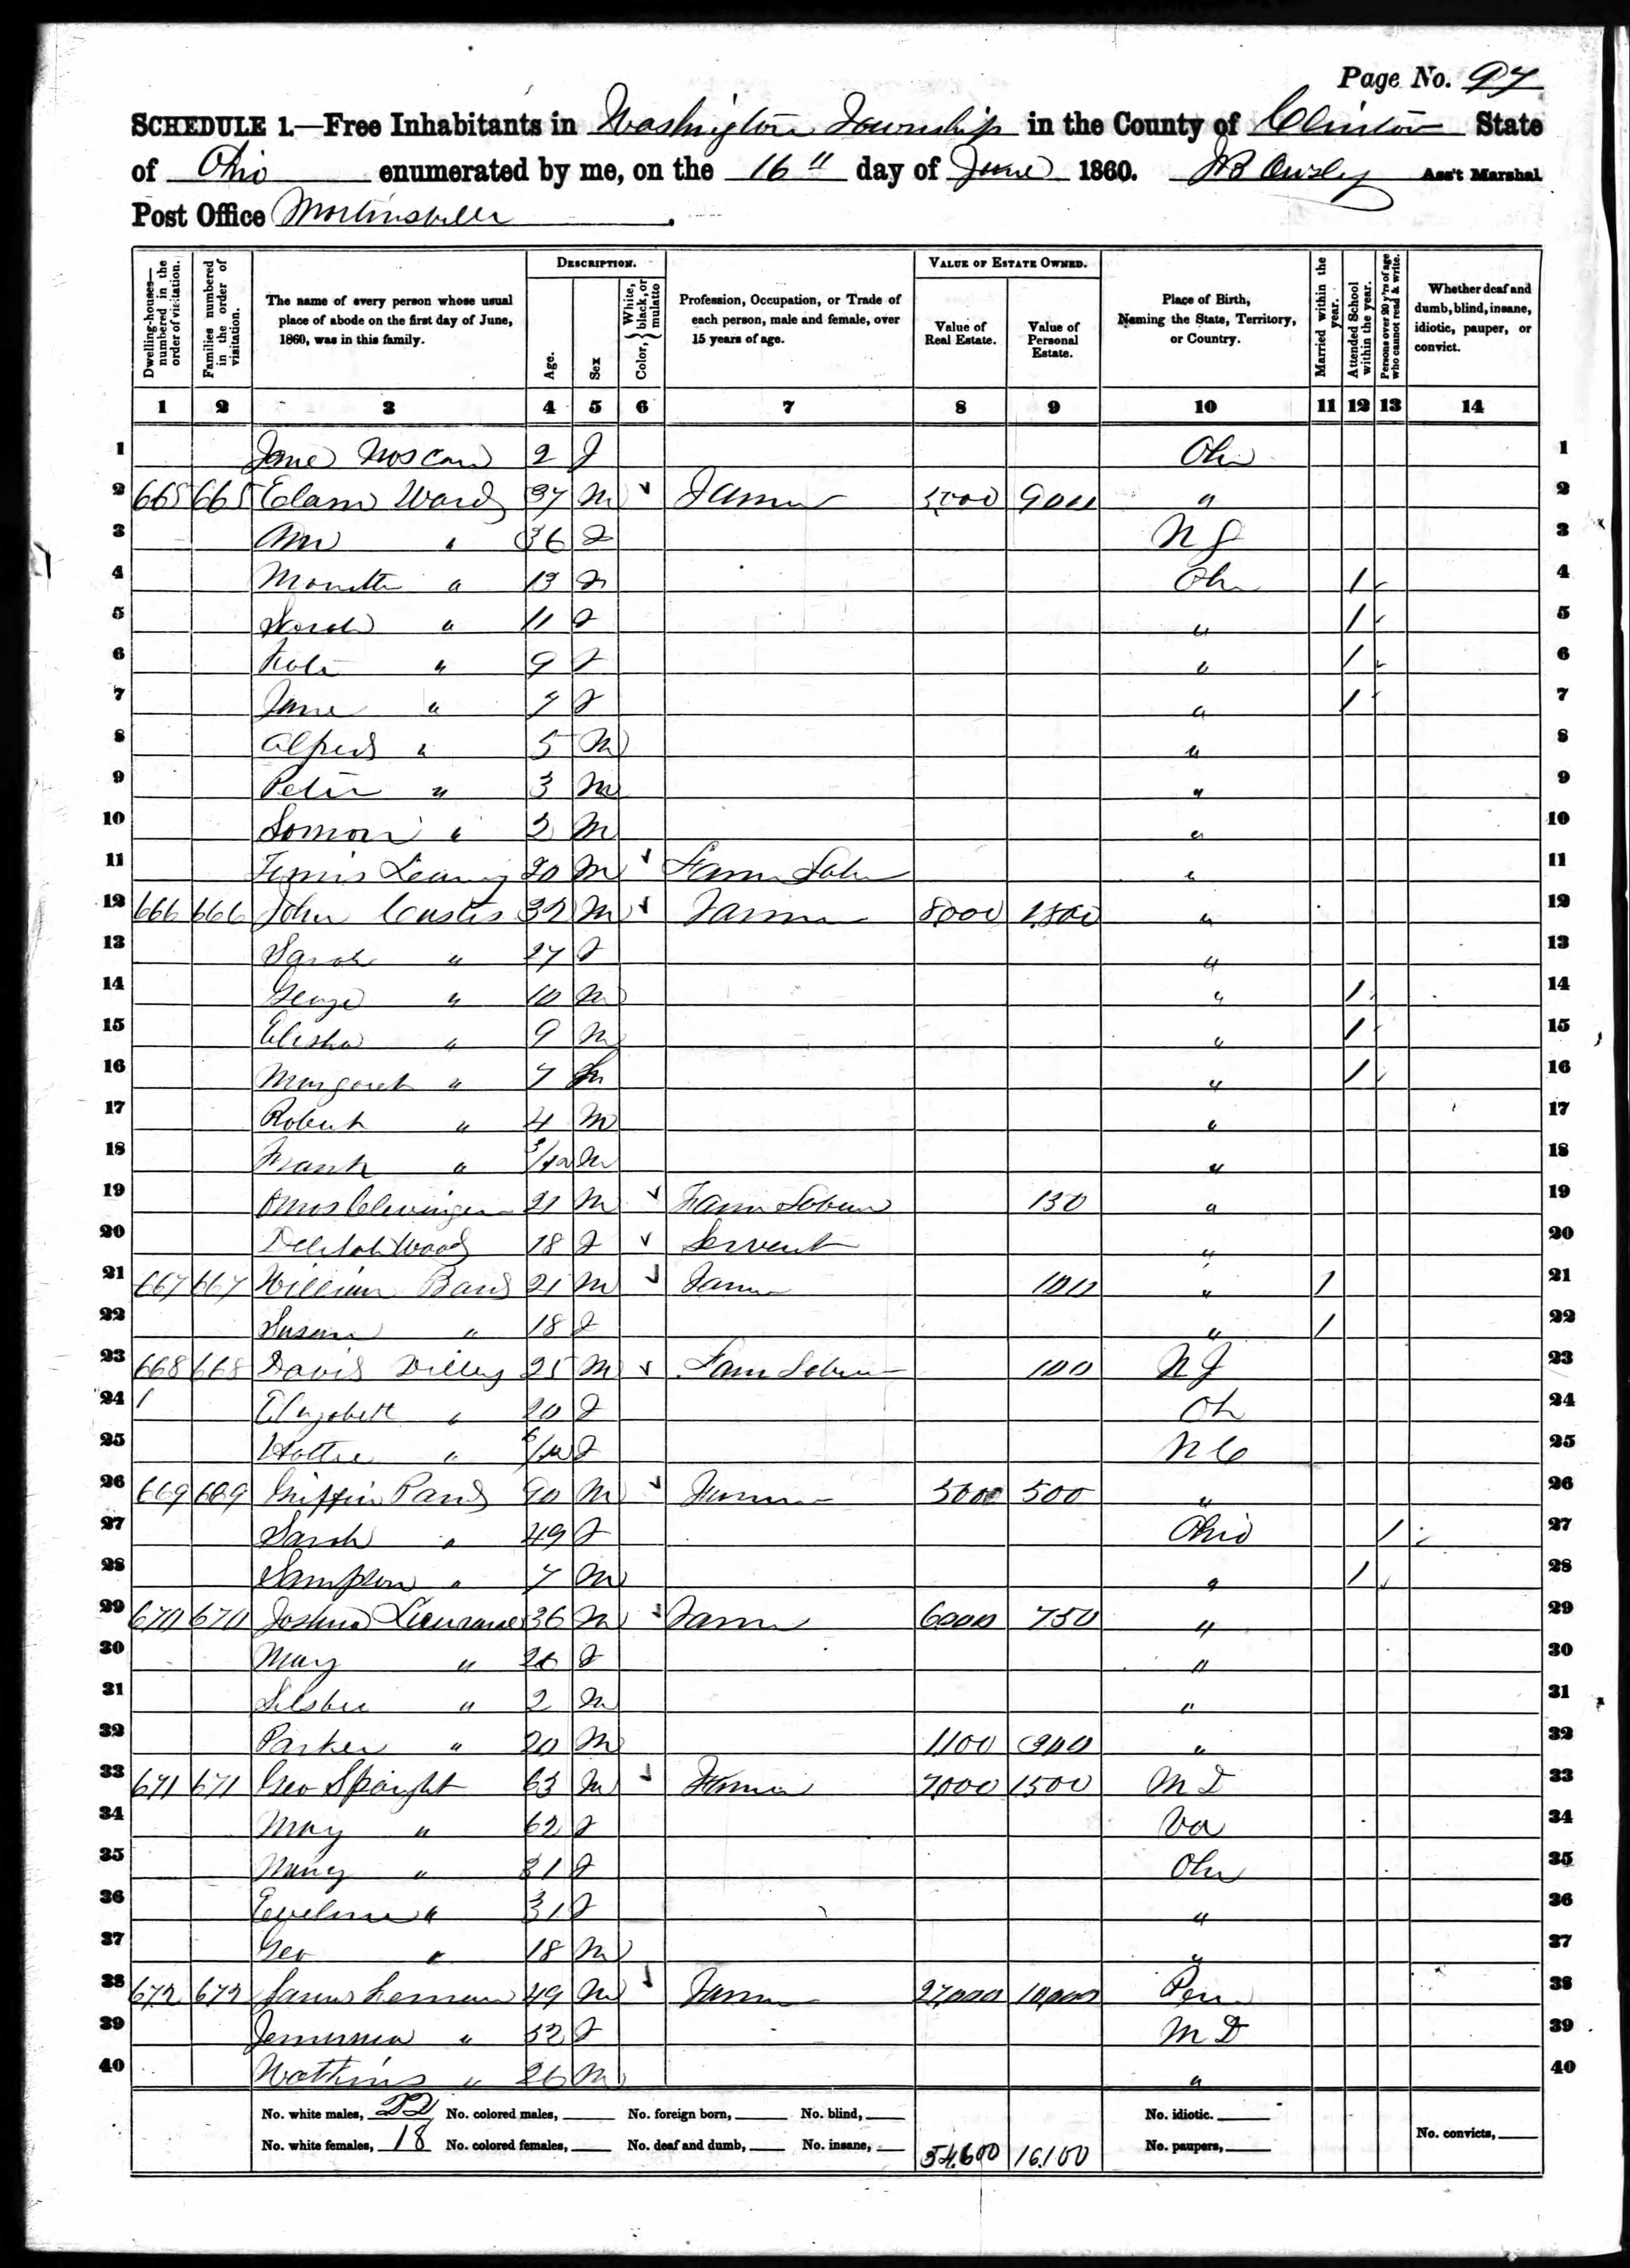 Page No. 97
SCHEDULE 1.—Free Inhabitants in Washington Township in the County of Clinton State
of Ohio enumerated by me, on the 16" day of June 1860. Ass't Marshal
Post Office Martinsville.
Dwelling-houses—numbered in the order of visitation.
Families numbered in the order of visitation.
The name of every person whose usual place of abode on the first day of June, 1860, was in this family.
DESCRIPTION.
Age.
Sex
Color, { White, black, or mulatto
Profession, Occupation, or Trade of each person, male and female, over 15 years of age.
VALUE OF ESTATE OWNED.
Value of Real Estate.
Value of Personal Estate.
Place of Birth, Naming the State, Territory, or Country.
Married within the year.
Attended School within the year.
Persons over 20 y'rs of age who cannot read & write.
Whether deaf and dumb, blind, insane, idiotic, pauper, or convict.
1 2 3 4 5 6 7 8 9 10 11 12 13 14
1 Jane 2 f Ohio 1
2 665 665 Elam Ward 37 m ✓ Farmer 900 " 2
3 " 36 f N J 3
4 " 13 Oh 1 4
5 Sarah " 11 f " 1 5
6 Kate " 9 f " 1 6
7 Jane " 7 f " 1 7
8 Alfred " 5 m " 8
9 Peter " 3 m " 9
10 " m " 10
11 20 m ✓ Farm Labr " 11
12 666 666 John Custis 32 m ✓ Farmer 8000 1,800 " 12
13 Sarah " 27 f " 13
14 George " 10 m " 1 14
15 Elisha " 9 m " 1 15
16 Margaret " 7 " 1 16
17 Robert " 4 m " 17
18 Frank " 3/12 m " 18
19 Amos Clevinger 21 m ✓ Farm Laborer 130 " 19
20 Delilah Wood 18 f ✓ Servent " 20
21 667 667 William 21 m ✓ Farmer 100 " 1 21
22 Susan " 18 f " 1 22
23 668 668 David 25 m ✓ Farm Laborer 100 N J 23
24 Elizabeth " 20 f Oh 24
25 Hattie " 6/12 f N C 25
26 669 669 Griffin m ✓ Farmer 500 " 26
27 Sarah " 49 f Ohio 1 27
28 Sampson " 7 m " 1 28
29 670 670 Joshua 36 m ✓ Farmer 6000 750 " 29
30 Mary " 26 f " 30
31 " 2 m " 31
32 Parker " 20 m 1100 " 32
33 671 671 Geo Spaight 63 m ✓ Farmer 7,000 1500 M D 33
34 Mary " 62 f Va 34
35 Nancy " 31 f Ohio 35
36 Eveline " 31 f " 36
37 Geo " 18 m " 37
38 672 672 49 m ✓ Farmer 27,000 10,000 Pen 38
39 " 52 f M D 39
40 Watkins " 26 m " 40
No. white males, 22 No. colored males, No. foreign born, No. blind, No. idiotic.
No. white females, 18 No. colored females, No. deaf and dumb, No. insane, 54,600 16,100 No. paupers, No. convicts,